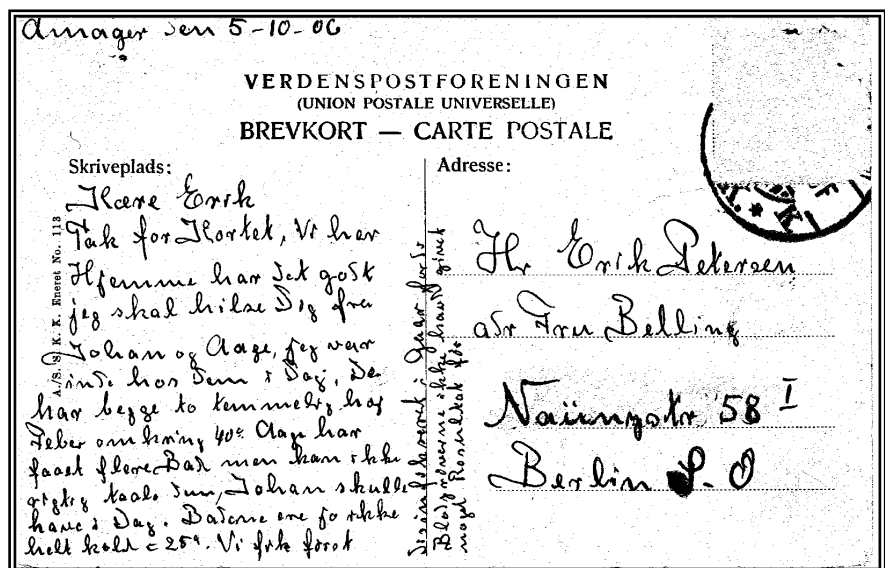 Amager den 5-10-06
VERDENSPOSTFORENINGEN
(UNION POSTALE UNIVERSELLE)
BREVKORT — CARTE POSTALE
Skriveplads:
Kære Erik
Tak for Kortet, Vi her
Hjemme har det godt
jeg skal hilse Dig fra
Johan og Aage, jeg var
inde hos dem i Dag, De
har begge to temmelig høj
Feber omkring 40° Aage har
faaet flere Bad men kan ikke
rigtig taale dem, Johan skulde
have i Dag. Badene ere jo ikke
helt kold = 25°. Vi fik först
desinficeret i Gaar fordi
Blodprøverne ikke havde givet
noget Resultat før
A./S. S. K. K. Eneret No. 113
Adresse:
Hr Erik Petersen
adr Fru Belling
Naunynstr 58 I
Berlin S.O